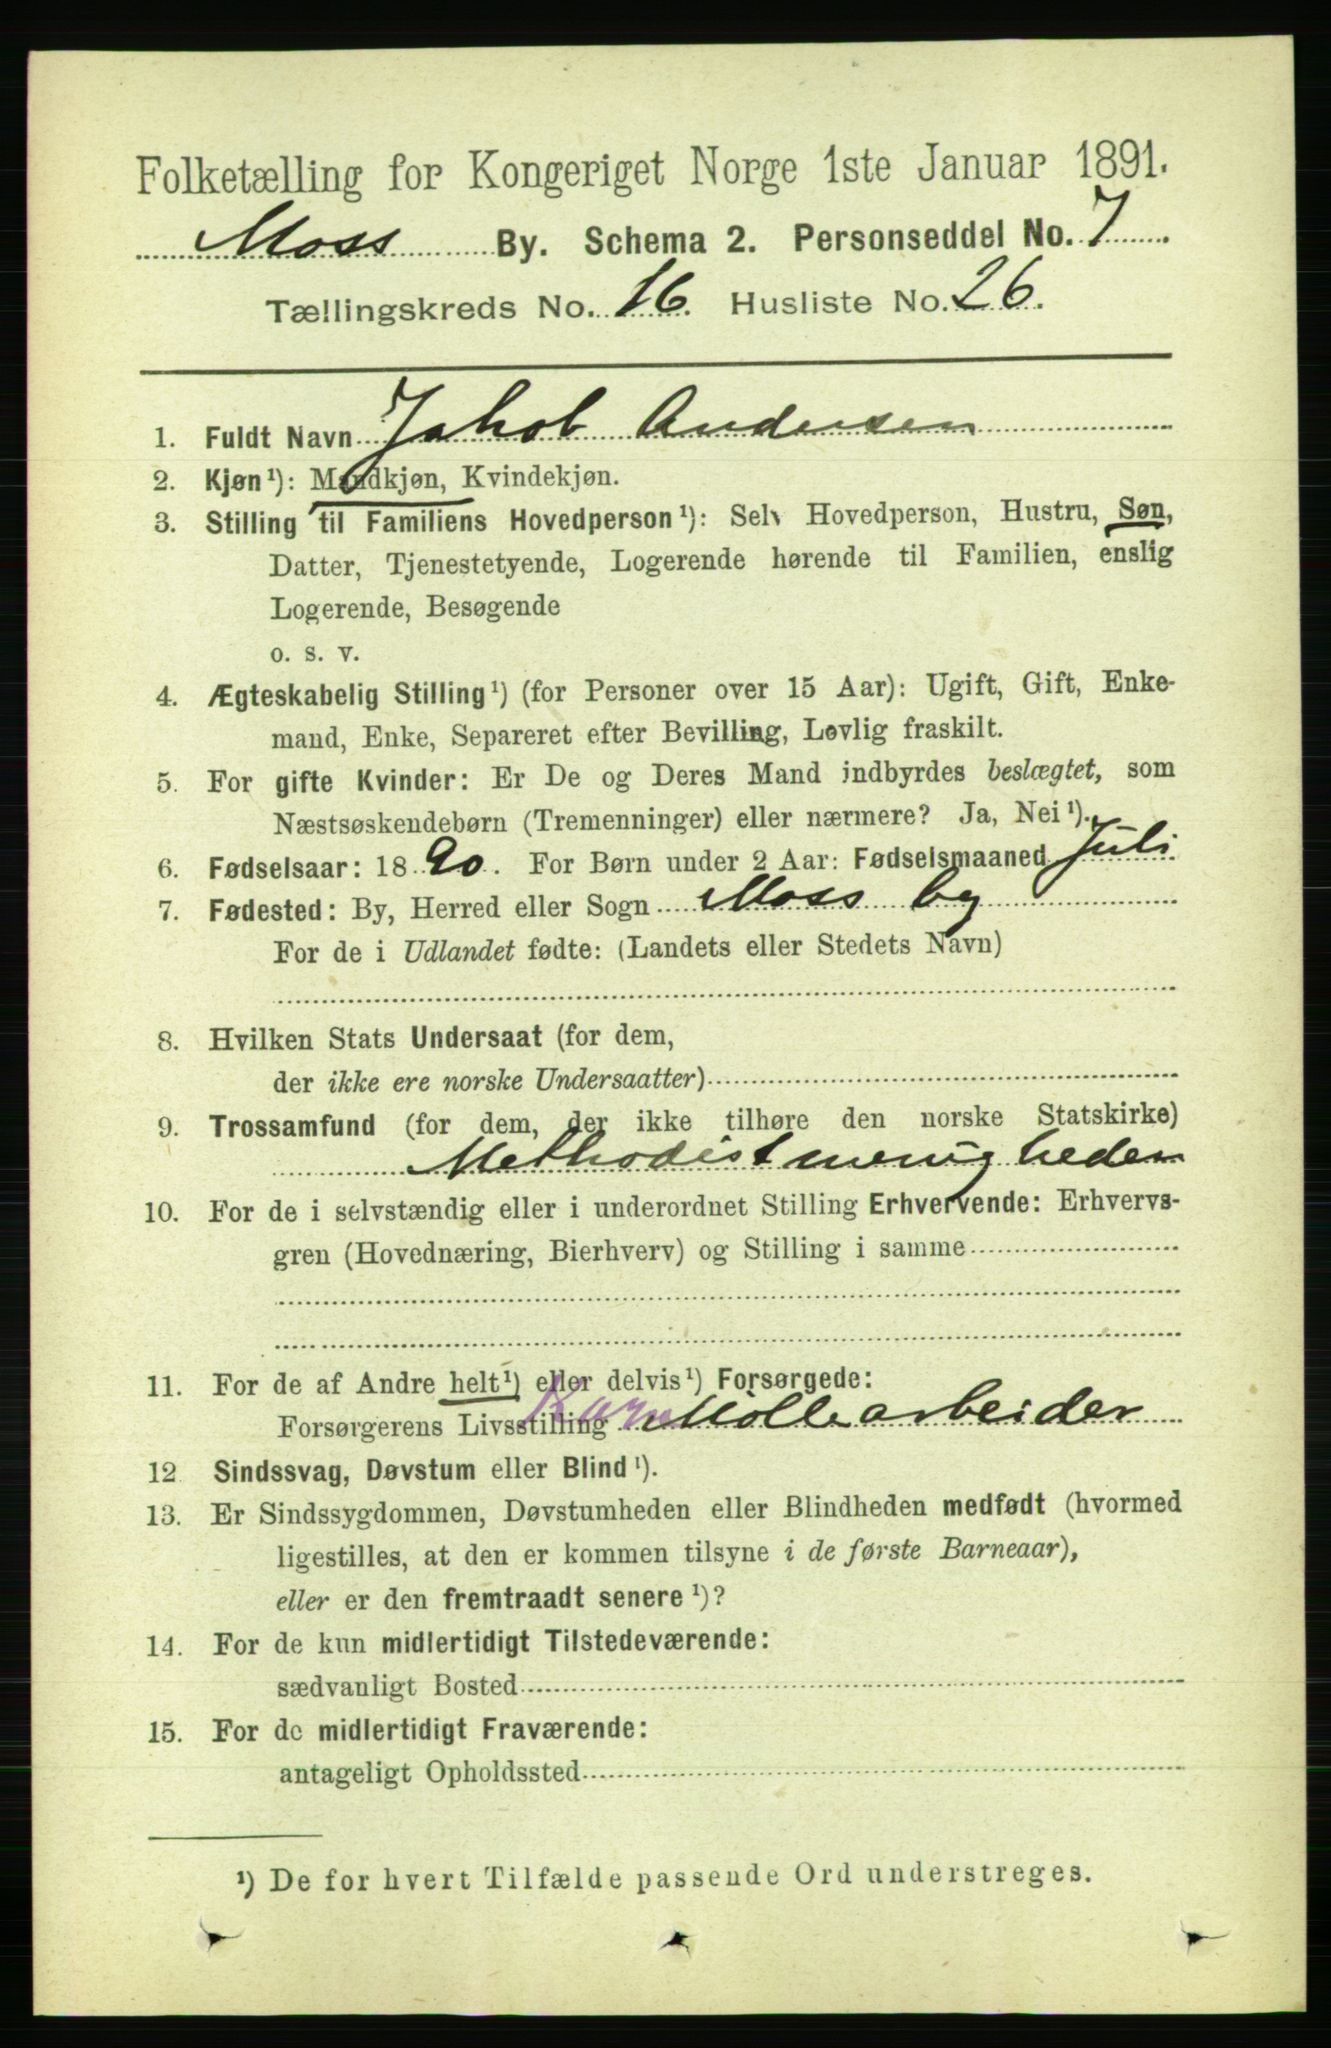 Folketælling for Kongeriget Norge 1ste Januar 1891.
Moss By. Schema 2. Personseddel No. 7
Tællingskreds No. 16. Husliste No. 26.
1. Fuldt Navn Jakob Andersen
2. Kjøn¹): Mandkjøn, Kvindekjøn.
3. Stilling til Familiens Hovedperson¹): Selv Hovedperson, Hustru, Søn,
Datter, Tjenestetyende, Logerende hørende til Familien, enslig
Logerende, Besøgende
o. s. v.
4. Ægteskabelig Stilling¹) (for Personer over 15 Aar): Ugift, Gift, Enke-
mand, Enke, Separeret efter Bevilling, Lovlig fraskilt.
5. For gifte Kvinder: Er De og Deres Mand indbyrdes beslægtet, som
Næstsøskendebørn (Tremenninger) eller nærmere? Ja, Nei¹).
6. Fødselsaar: 1890. For Børn under 2 Aar: Fødselsmaaned Juli
7. Fødested: By, Herred eller Sogn Moss by
For de i Udlandet fødte: (Landets eller Stedets Navn)
8. Hvilken Stats Undersaat (for dem,
der ikke ere norske Undersaatter)
9. Trossamfund (for dem, der ikke tilhøre den norske Statskirke)
Methodistmenigheden
10. For de i selvstændig eller i underordnet Stilling Erhvervende: Erhvervs-
gren (Hovednæring, Bierhverv) og Stilling i samme
11. For de af Andre helt¹) eller delvis¹) Forsørgede:
Forsørgerens Livsstilling Korn Møllearbeider
12 Sindssvag, Døvstum eller Blind¹).
13. Er Sindssygdommen, Døvstumheden eller Blindheden medfødt (hvormed
ligestilles, at den er kommen tilsyne i de første Barneaar),
eller er den fremtraadt senere¹)?
14. For de kun midlertidigt Tilstedeværende:
sædvanligt Bosted
15. For de midlertidigt Fraværende:
antageligt Opholdssted
¹) De for hvert Tilfælde passende Ord understreges.